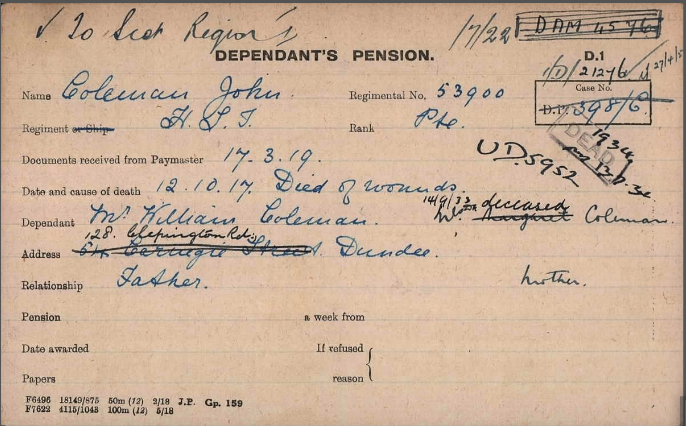 ✓ To Scot Region 1/7/22 DAM 4576
DEPENDANT'S PENSION. D.1
1/D/21276
Case No.
Name Coleman John. Regimental No. 53900 D.1 398/6.
Regiment or Ship H. L. I. Rank Pte. DEAD
Documents received from Paymaster 17.3.19. UD.5952
Date and cause of death 12.10.17. Died of wounds.
14/9/33 deceased
Dependant Mr William Coleman. Margaret Coleman.
128. Clepington Rd.
Address 54 Carnegie Street. Dundee.
Relationship Father. Mother.
Pension a week from
Date awarded If refused
Papers reason
F6496 18149/875 50m (12) 2/18 J.P. Gp. 159
F7622 4115/1043 100m (12) 5/18